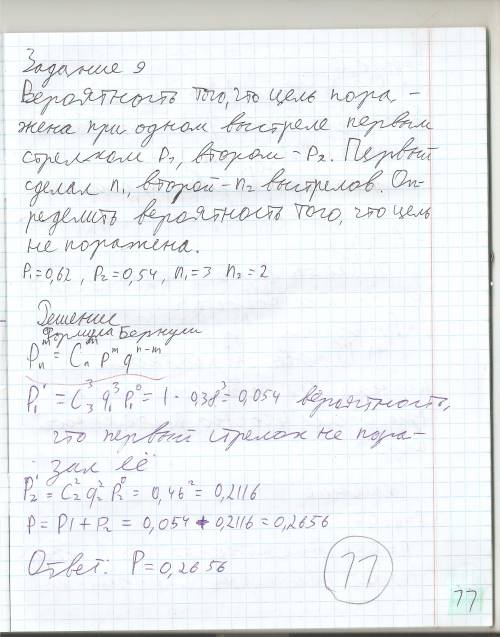 Задание 9
Вероятность того, что цель пора-
жена при одном выстреле первым
стрелком P₁, втором - P₂. Первый
сделал n₁, второй - n₂ выстрелов. Оп-
ределить вероятность того, что цель
не поражена.
P₁=0,62, P₂=0,54, n₁=3 n₂=2
Решение
Формула Бернули
Pₙᵐ = Cₙᵐ pᵐ qⁿ⁻ᵐ
P₁' = C₃³ q₁³ P₁⁰ = 1 · 0,38³ = 0,054 вероятность,
что первый стрелок не пора-
зил её
P₂' = C₂² q₂² P₂⁰ = 0,46² = 0,2116
P = P1 + P₂ = 0,054 + 0,2116 = 0,2656
Ответ: P = 0,2656
11
11